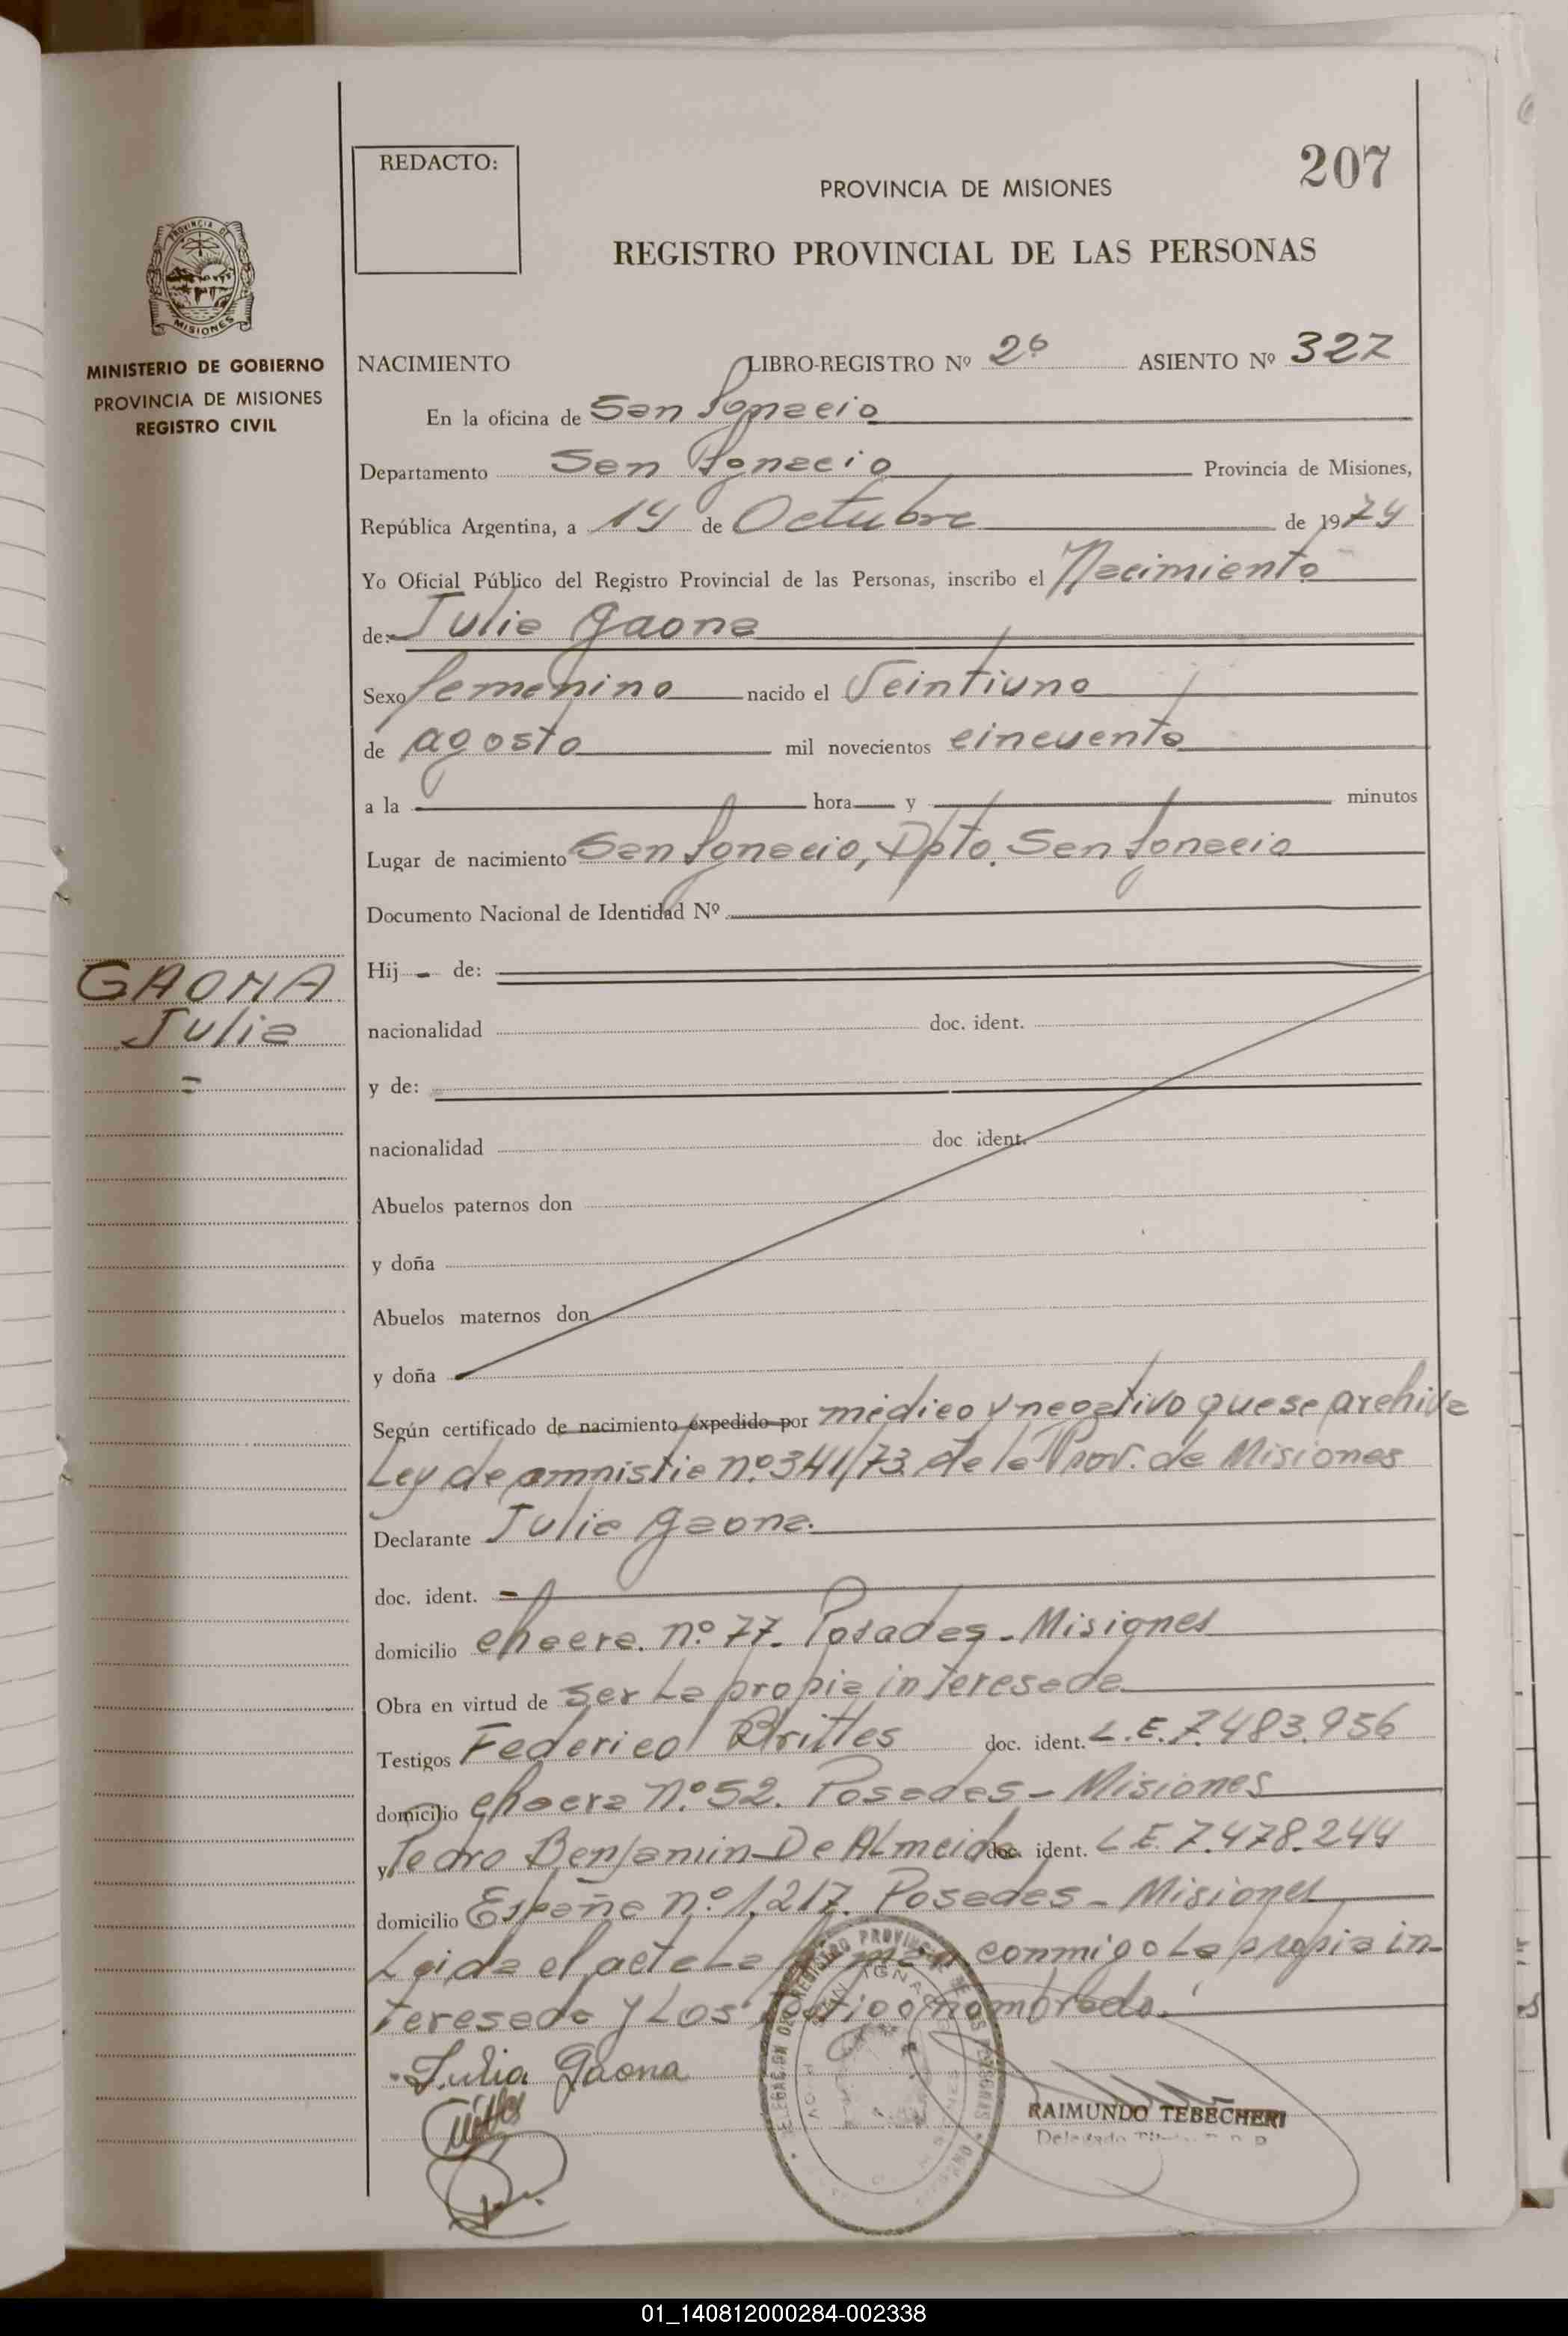 REDACTO:
207
PROVINCIA DE MISIONES
REGISTRO PROVINCIAL DE LAS PERSONAS
PROVINCIA DE
MISIONES
MINISTERIO DE GOBIERNO
PROVINCIA DE MISIONES
REGISTRO CIVIL
NACIMIENTO LIBRO-REGISTRO Nº 2º ASIENTO Nº 327
En la oficina de San Ignacio
Departamento San Ignacio Provincia de Misiones,
República Argentina, a 14 de Octubre de 1974
Yo Oficial Público del Registro Provincial de las Personas, inscribo el Nacimiento
de: Julia Gaona
Sexo femenino nacido el Veintiuno
de agosto mil novecientos cincuenta
a la hora y minutos
Lugar de nacimiento San Ignacio, Dpto. San Ignacio
Documento Nacional de Identidad Nº
Hij - de:
GAONA
Julia
=
nacionalidad doc. ident.
y de:
nacionalidad doc ident.
Abuelos paternos don
y doña
Abuelos maternos don
y doña
Según certificado de nacimiento expedido por médico y negativo que se archiva
Ley de amnistia nº 341/73 de la Prov. de Misiones
Declarante Julia Gaona.
doc. ident. -
domicilio chacra. nº 77. Posadas - Misiones
Obra en virtud de ser La propia interesada
Testigos Federico Brittes doc. ident. L.E. 7.483.956
domicilio chacra nº 52. Posadas - Misiones
y Pedro Benjamin De Almeida doc. ident. L.E. 7.478.244
domicilio España nº 1.217. Posadas - Misiones
Leida el acta La firman conmigo La propia in-
teresada y Los nombrado.
Julia Gaona
RAIMUNDO TEBECHERI
Delegado
01_140812000284-002338